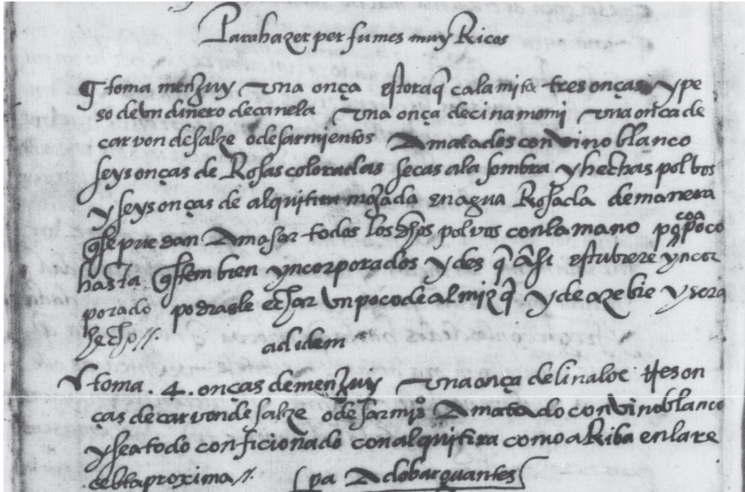 Para hazer perfumes muy Ricos
toma menzuy una onça estoraq̃ calamita tres onças y pe
so de un dinero de canela una onça de cinamomi una onça de
carvon de salze o de sarmientos Amatados con vino blanco
seys onças de Rosas coloradas secas a la sombra y hechas polbos
y seys onças de alquitira mojada en agua Rosada de manera
q̃ se puedan Amasar todos los dhos polvos con la mano poco
hasta q̃ esten bien yncorporados y des q̃ asi estubiere yncor
porado podrasle echar un poco de almizq̃ y de azebie y sera
hecho //.
ad idem
toma .4. onças de menzuy una onça de linaloe tres on
ças de carvon de salze o de sarmi͂os Amatado con vino blanco
y sea todo conficionado con alquitira como aRiba en la re
cebta proxima //. pa Adobar guantes